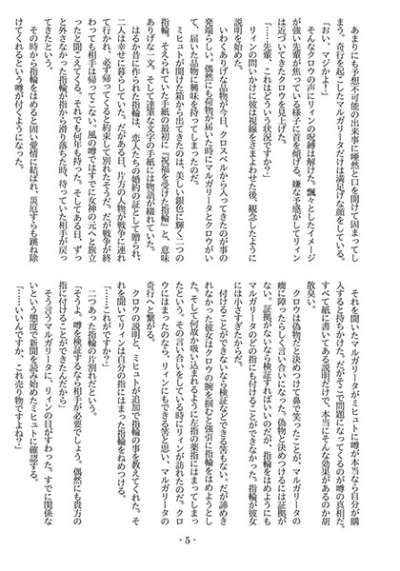 あまりにも予想不可能の出来事に唖然と口を開けて固まってし
まう。奇行を起こしたマルガリータだけは満足げな顔をしている。
「おい、マジかよ！」
そんなクロウの声にリィンの呪縛は解けた。飄々としたイメージ
が強い先輩が焦っている様子に首を傾げる。嫌な予感がしてリィン
は近づいてきたクロウを見上げた。
「……先輩、これはどういう状況ですか？」
リィンの問いかけに彼は視線をさまよわせた後、観念したように
説明を始めた。
いわくありげな品物が今日、クロスベルから入ってきたのが事の
発端らしい。偶然にも荷物が届いた時にマルガリータとクロウがい
て、届いた品物に興味を持ってしまったのだ。
ミヒュトが開けた箱から出てきたのは、美しい銀色に輝く二つの
指輪。そえられていた手紙の最初に「祝福を受けた指輪」と、意味
ありげな一文。そして達筆な文字の手紙には物語が綴れていた。
はるか昔に作られた指輪は、恋人たちの婚約の証として贈られ、
二人は幸せに暮らしていた。だがある日、片方の人物が戦争に連れ
て行かれ、必ず帰ってくると約束して別れたそうだ。だが戦争が終
わっても相手は帰ってこない。風の噂ではすでに女神の元へと旅立
ったと聞こえてくる。それでも何年も待った。そしてある日、ずっ
と外さなかった指輪が指から滑り落ちた時、待っていた相手が戻っ
てきたという。
その時から指輪をはめると固い愛情に結ばれ、災厄すらも跳ね除
けてくれるという噂が付くようになった。
それを聞いたマルガリータがミヒュトに噂が本当なら自分が購
入すると持ちかけた。だがそこで問題になってくるのが噂の真相だ。
すべて紙に書いてある説明だけで、本当にそんな効果があるのか胡
散臭い。
クロウは偽物だと決めつけて鼻で笑ったことが、マルガリータの
癪に障ったらしく言い合いになった。偽物と決めつけるには証拠が
ない。証拠がないなら検証すればいいのだが、指輪をはめようにも
マルガリータのどの指にも付けることができなかった。指輪が彼女
には小さすぎたからだ。
付けることができないなら検証などできる筈もない。だが諦めき
れなかった彼女はクロウの腕を掴むと強引に指輪をはめようとし
た。そして何故か吸い込まれるように左指の薬指にはまってしまっ
たという。その言い合いをしている時にリィンが訪れたのだ。クロ
ウにはまったのなら、リィンにもできる筈と思い、マルガリータの
奇行へと繋がる。
クロウの説明と、ミヒュトが追加で指輪の事を教えてくれた。そ
れを聞いてリィンは自分の指にはまった指輪をねめつける。
「……これがですか？」
二つあった指輪の片割れだという。
「そうよ、噂を検証するなら相手が必要でしょう。偶然にも貴方の
指に付けることができたんだから」
そう言うマルガリータに、リィンの目がすわった。すでに関係な
いという態度で新聞を読み始めたミヒュトに確認する。
「……いいんですか、これ売り物ですよね？」
- 5 -